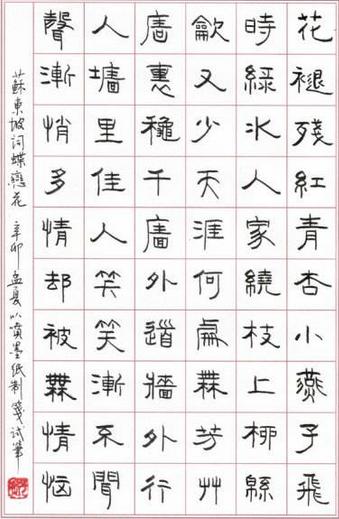 花褪殘紅青杏小燕子飛
時綠水人家繞枝上柳緜
龡又少天涯何處橆芳艸
廧裏穐千廧外道牆外行
人墻里佳人笑笑漸不聞
聲漸悄多情却被橆情惱
蘇東坡詞蝶戀花 辛卯孟夏以噴墨紙制箋試筆